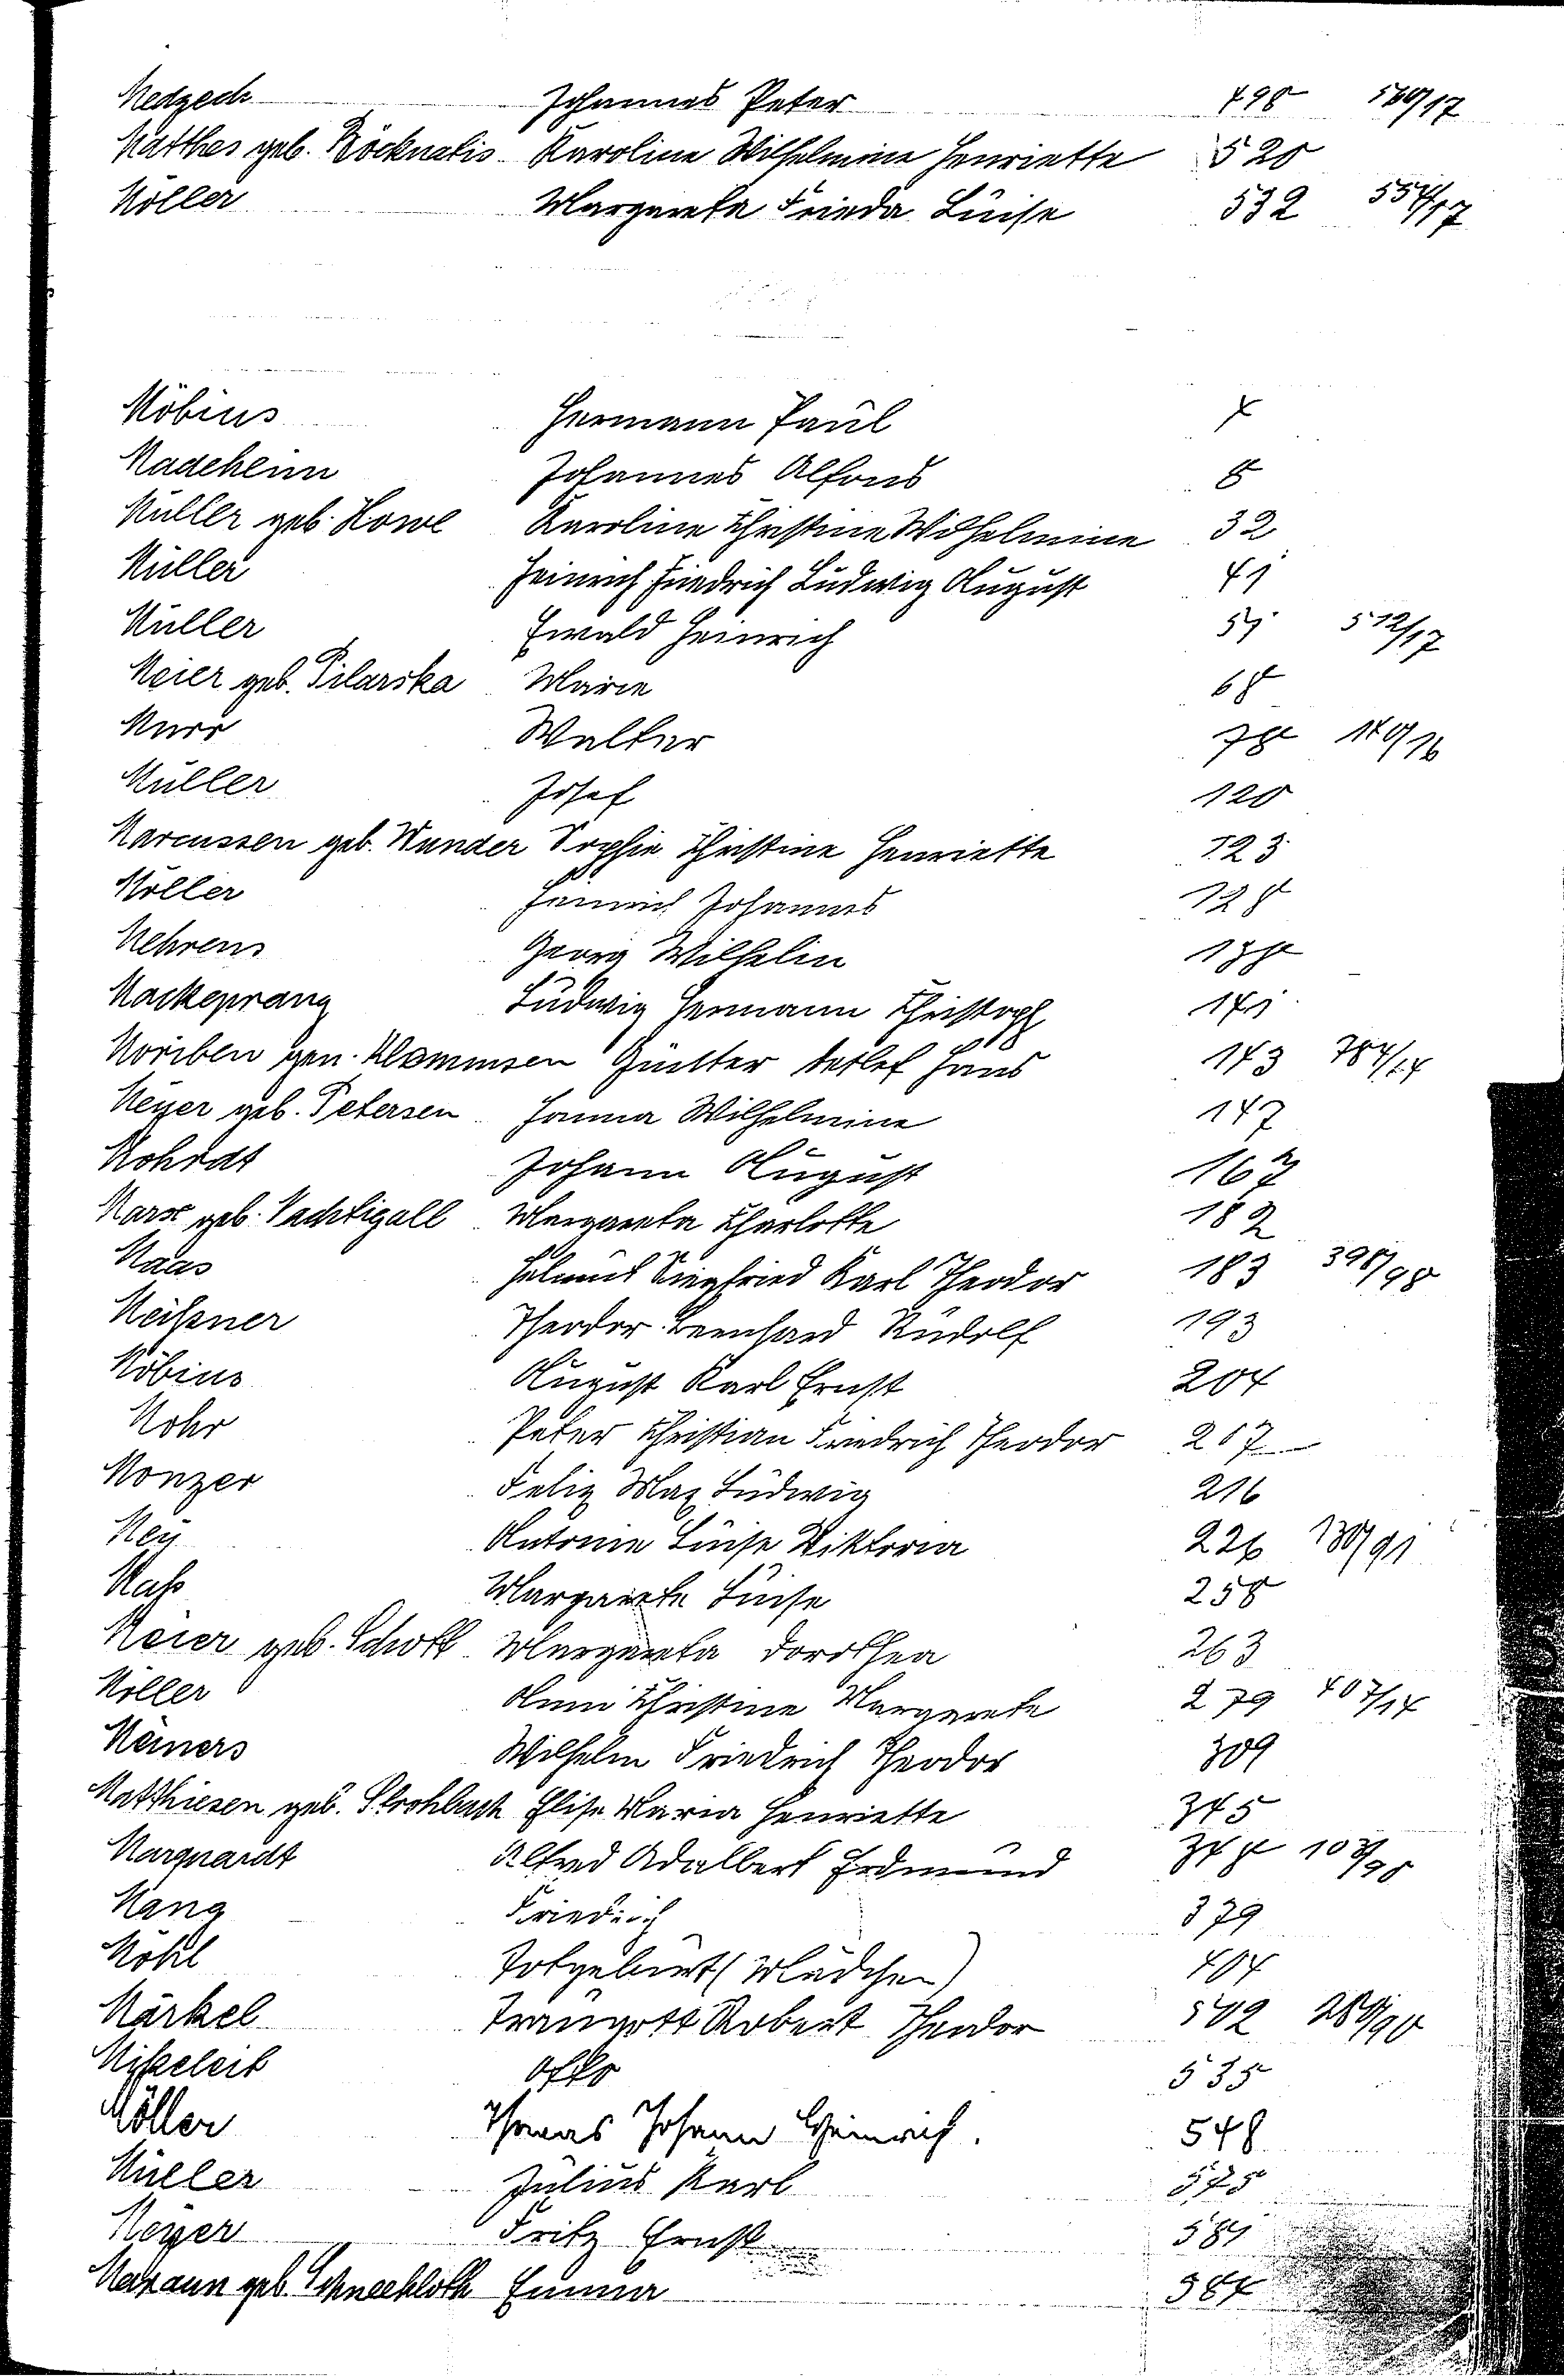 Medzech Johannes Peter 498 560/17
Matthes geb. Böcknatis Karoline Wilhelmine Henriette 520
Möller Margareta Frieda Luise 532 554/17
Möbius Hermann Paul 4
Madeheim Johannes Alfons 8
Müller geb. Howe Karoline Christine Wilhelmine 32
Müller Heinrich Friedrich Ludwig August 41
Müller Ewald Heinrich 51 512/17
Meier geb. Pilarska Marie 68
Murr Walter 78 140/16
Müller Josef 120
Marcussen geb. Wunder Sophie Christine Henriette 123
Möller Heinrich Johannes 128
Mehrens Georg Wilhelm 138
Mackeprang Ludwig Hermann Christoph 141
Moriben gen. Klemmsen Günther Detlef Hans 143 784/14
Meyer geb. Petersen Hanna Wilhelmine 147
Mohrdt Johann August 167
Marx geb. Nachtigall Margareta Charlotte 182
Maas Helmut Siegfried Karl Theodor 183 398/98
Meißner Theodor Bernhard Rudolf 193
Möbius August Karl Ernst 204
Mohr Peter Christian Friedrich Theodor 207
Monzer Felix Max Ludwig 216
Mey Antonie Luise Viktoria 226 130/91
Maß Margarete Luise 258
Meier geb. Schott Margareta Dorothea 263
Möller Anni Christine Margarete 279 407/14
Meiners Wilhelm Friedrich Theodor 309
Matthiesen geb. Strohbach Elise Maria Henriette 345
Marquardt Alfred Adalbert Erdmund 348 103/98
Mang Friedrich 379
Möhl Totgeburt (Mädchen) 404
Märkel Traugott Robert Theodor 502 280/90
Mikeleit Otto 535
Möller Thomas Johann Heinrich. 548
Müller Julius Karl 575
Meyer Fritz Ernst 581
Maxaun geb. Schneekloth Emma 584